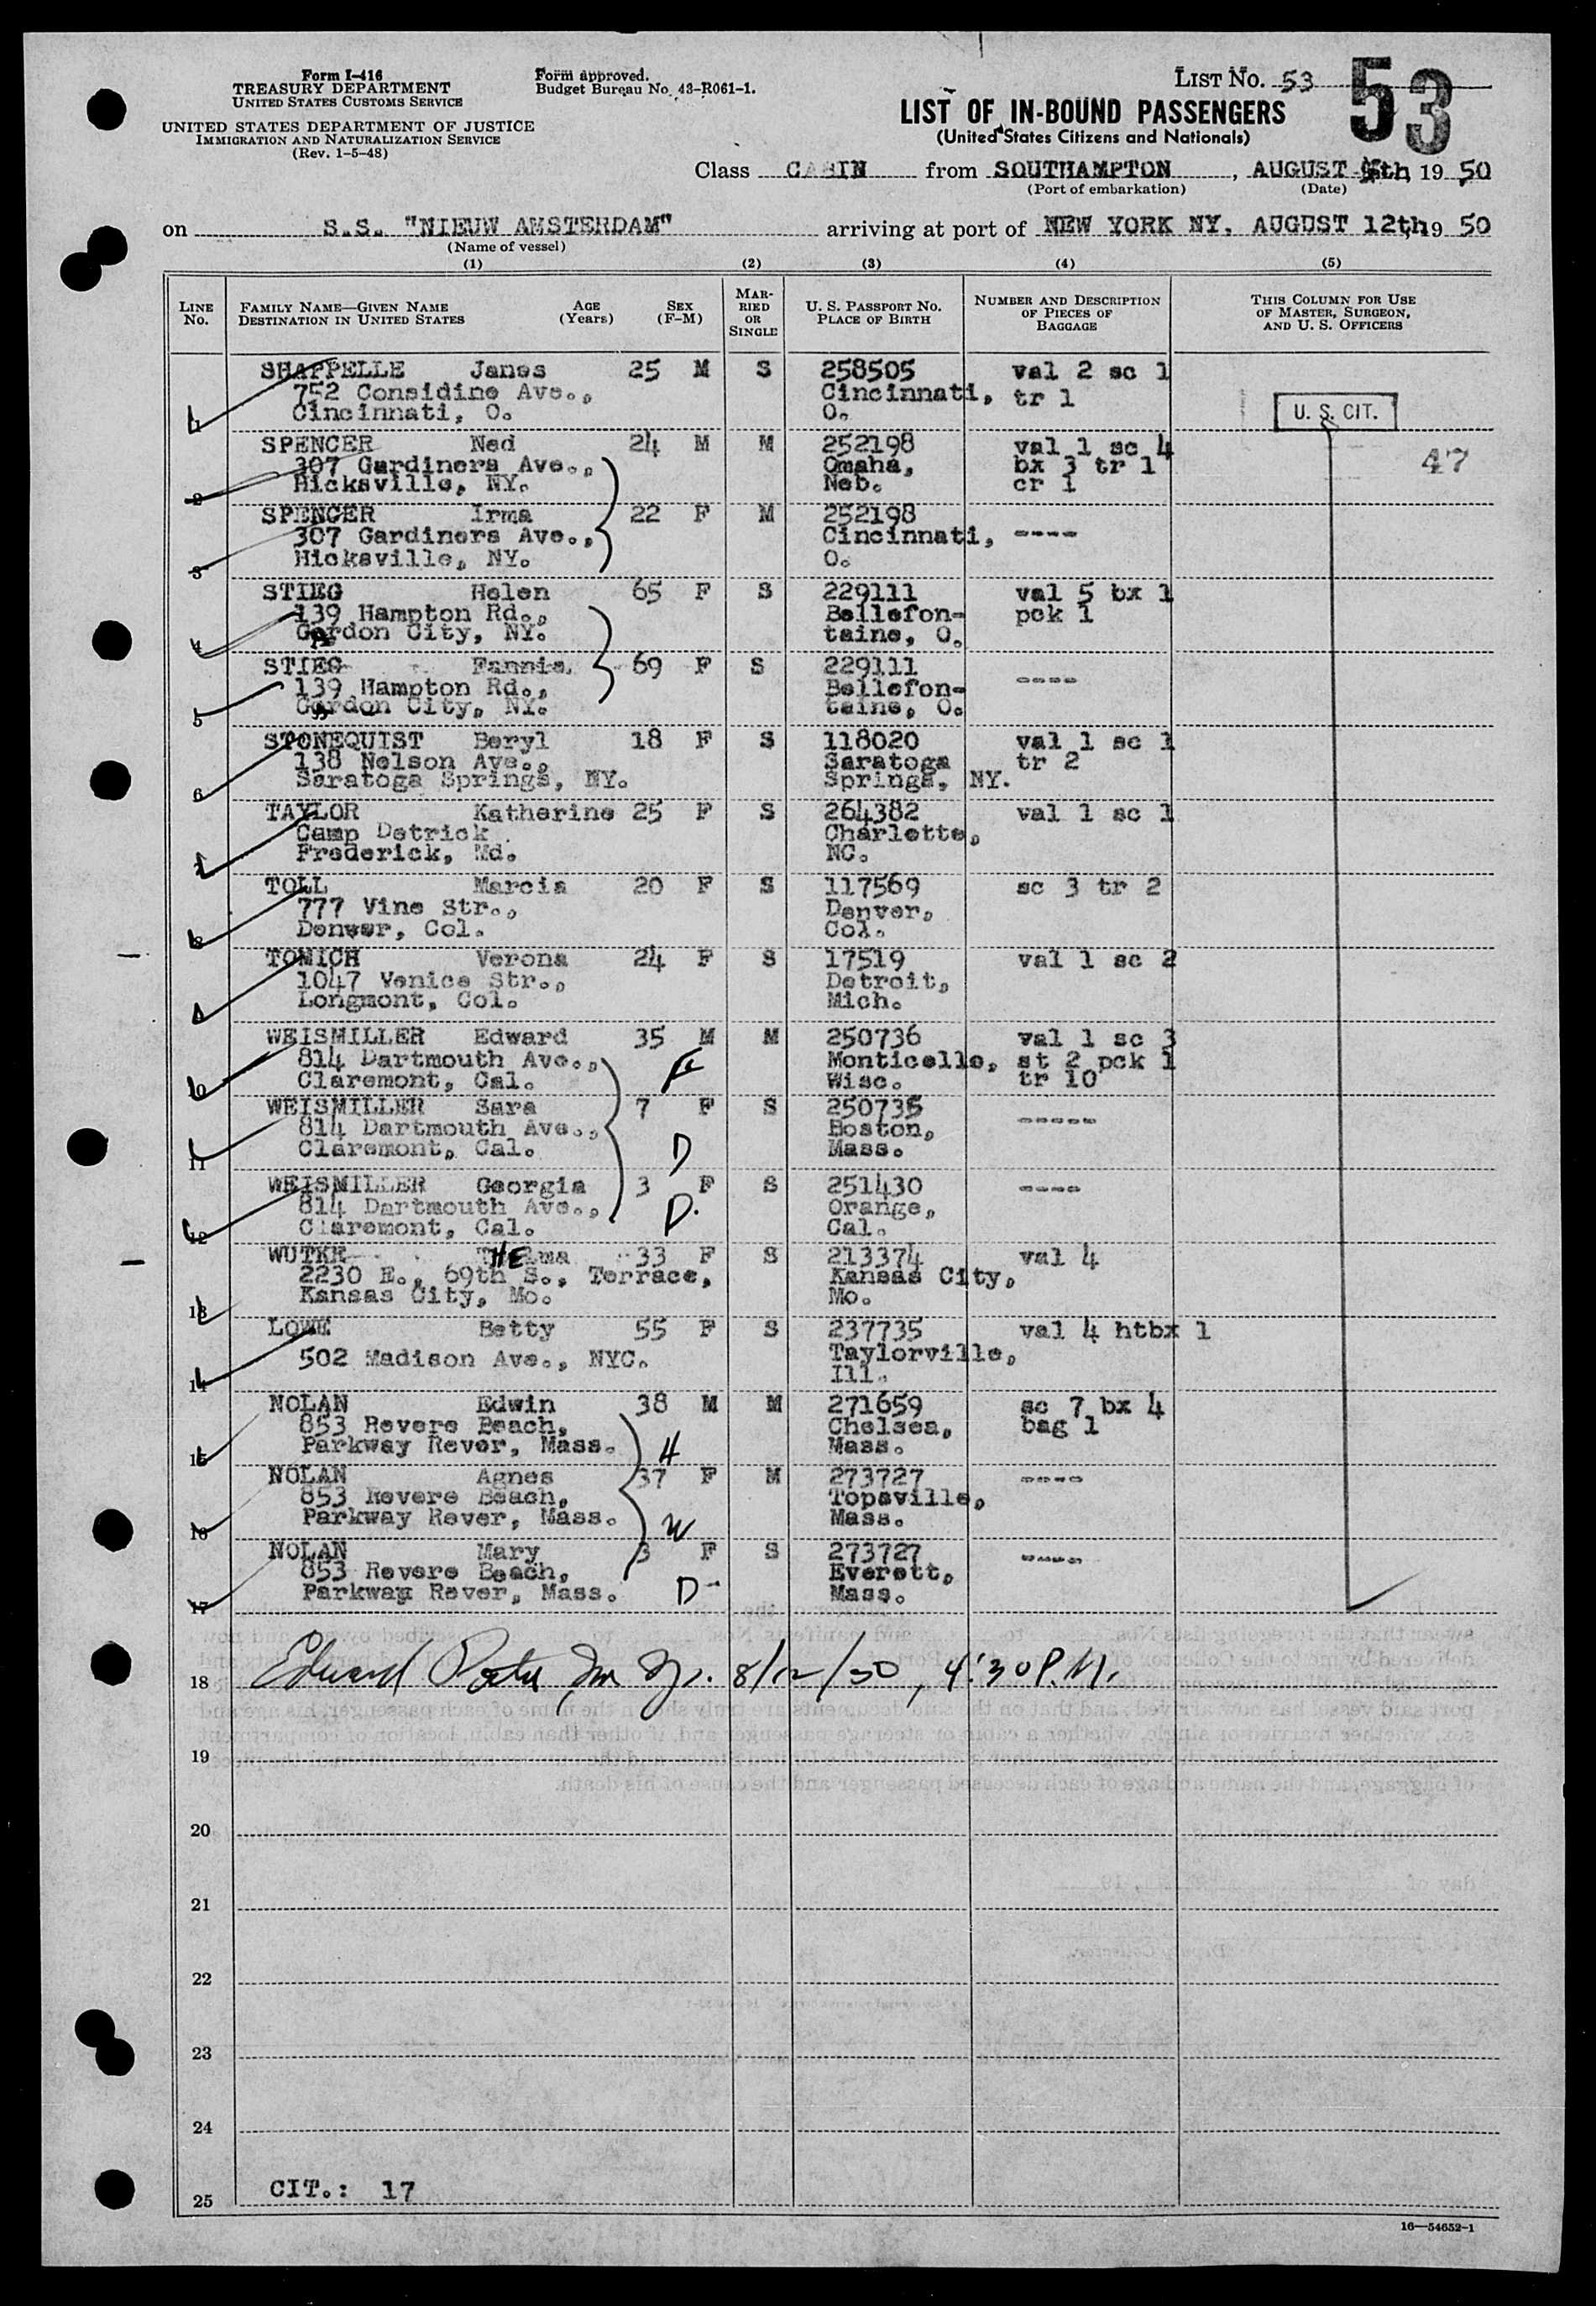 Form I-416
TREASURY DEPARTMENT
UNITED STATES CUSTOMS SERVICE
UNITED STATES DEPARTMENT OF JUSTICE
IMMIGRATION AND NATURALIZATION SERVICE
(Rev. 1-5-48)
Form approved.
Budget Bureau No. 43-R061-1.
LIST NO. 53
53
LIST OF IN-BOUND PASSENGERS
(United States Citizens and Nationals)
Class CABIN from SOUTHAMPTON, AUGUST 5th, 19 50
(Port of embarkation) (Date)
on S.S. "NIEUW AMSTERDAM" arriving at port of NEW YORK NY. AUGUST 12th, 19 50
(Name of vessel)
(1) (2) (3) (4) (5)
LINE No.
FAMILY NAME—GIVEN NAME AGE SEX
DESTINATION IN UNITED STATES (Years) (F-M)
MAR-
RIED
OR
SINGLE
U. S. PASSPORT NO.
PLACE OF BIRTH
NUMBER AND DESCRIPTION
OF PIECES OF
BAGGAGE
THIS COLUMN FOR USE
OF MASTER, SURGEON,
AND U. S. OFFICERS
SHAPPELLE James 25 M S 258505 val 2 sc 1
752 Considine Ave., Cincinnati, tr 1
1 Cincinnati, O. O. U. S. CIT.
SPENCER Ned 24 M M 252198 val 1 sc 4
307 Gardiners Ave., Omaha, bx 3 tr 1 47
2 Hicksville, NY. Neb. cr 1
SPENCER Irma 22 F M 252198
307 Gardiners Ave., Cincinnati, ----
3 Hicksville, NY. O.
STIEG Helen 65 F S 229111 val 5 bx 1
139 Hampton Rd., Bellefon- pck 1
4 Gardon City, NY. taine, O.
STIEG Fannie 69 F S 229111
139 Hampton Rd., Bellefon- ----
5 Gardon City, NY. taine, O.
STONEQUIST Beryl 18 F S 118020 val 1 sc 1
138 Nelson Ave., Saratoga tr 2
6 Saratoga Springs, NY. Springs, NY.
TAYLOR Katherine 25 F S 264382 val 1 sc 1
Camp Detrick Charlotte,
7 Frederick, Md. NC.
TOLL Marcia 20 F S 117569 sc 3 tr 2
777 Vine Str., Denver,
8 Denver, Col. Col.
TOMICH Verona 24 F S 17519 val 1 sc 2
1047 Venice Str., Detroit,
9 Longmont, Col. Mich.
WEISMILLER Edward 35 M M 250736 val 1 sc 3
814 Dartmouth Ave., F Monticello, st 2 pck 1
10 Claremont, Cal. Wisc. tr 10
WEISMILLER Sara 7 F S 250735
814 Dartmouth Ave., Boston, -----
11 Claremont, Cal. D Mass.
WEISMILLER Georgia 3 F S 251430 ----
814 Dartmouth Ave., D. Orange,
12 Claremont, Cal. Cal.
WUTKE THElma 33 F S 213374 val 4
2230 E., 69th S., Terrace, Kansas City,
13 Kansas City, Mo. Mo.
LOWE Betty 55 F S 237735 val 4 htbx 1
502 Madison Ave., NYC. Taylorville,
14 Ill.
NOLAN Edwin 38 M M 271659 sc 7 bx 4
853 Revere Beach, Chelsea, bag 1
15 Parkway Rever, Mass. H Mass.
NOLAN Agnes 37 F M 273727 ----
853 Revere Beach, Topsville,
16 Parkway Rever, Mass. W Mass.
NOLAN Mary 3 F S 273727 -----
853 Revere Beach, Everett,
17 Parkway Rever, Mass. D- Mass.
18 Edward 8/12/50, 4:30 P.M.
19
20
21
22
23
24
25 CIT.: 17
16—54652-1